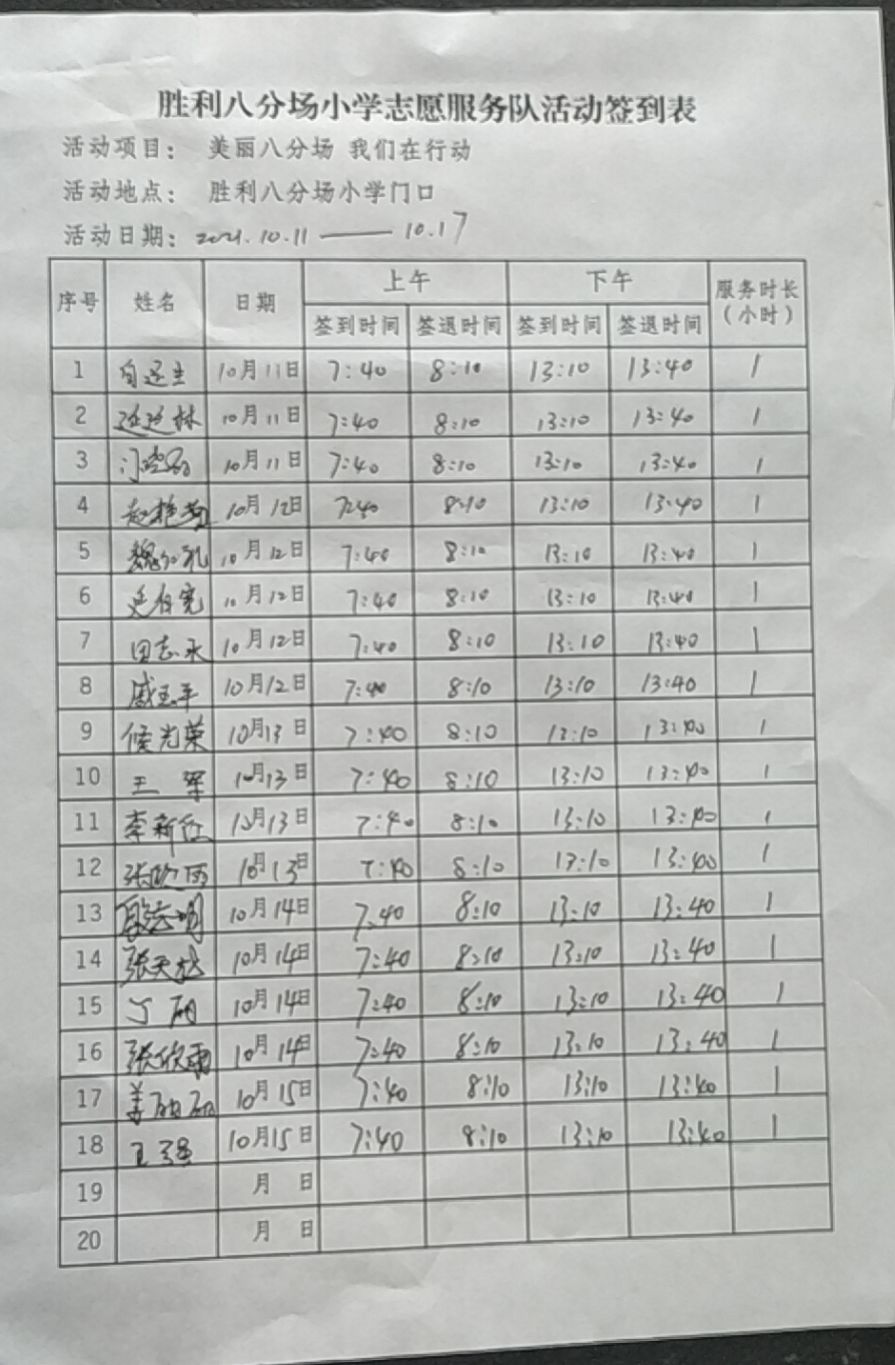 胜利八分场小学志愿服务队活动签到表
活动项目： 美丽八分场 我们在行动
活动地点： 胜利八分场小学门口
活动日期：2021.10.11 —— 10.17
序号 姓名 日期 上午 下午 服务时长（小时）
签到时间 签退时间 签到时间 签退时间
1 10月11日 7:40 8:10 13:10 13:40 1
2 10月11日 7:40 8:10 13:10 13:40 1
3 10月11日 7:40 8:10 13:10 13:40 1
4 10月12日 7:40 8:10 13:10 13:40 1
5 10月12日 7:40 8:10 13:10 13:40 1
6 10月12日 7:40 8:10 13:10 13:40 1
7 田志永 10月12日 7:40 8:10 13:10 13:40 1
8 戚玉平 10月12日 7:40 8:10 13:10 13:40 1
9 侯光荣 10月13日 7:40 8:10 13:10 13:40 1
10 王军 10月13日 7:40 8:10 13:10 13:40 1
11 李新红 10月13日 7:40 8:10 13:10 13:40 1
12 张欣雨 10月13日 7:40 8:10 13:10 13:40 1
13 10月14日 7:40 8:10 13:10 13:40 1
14 10月14日 7:40 8:10 13:10 13:40 1
15 10月14日 7:40 8:10 13:10 13:40 1
16 张欣雨 10月14日 7:40 8:10 13:10 13:40 1
17 姜丽丽 10月15日 7:40 8:10 13:10 13:40 1
18 王强 10月15日 7:40 8:10 13:10 13:40 1
19 月 日
20 月 日